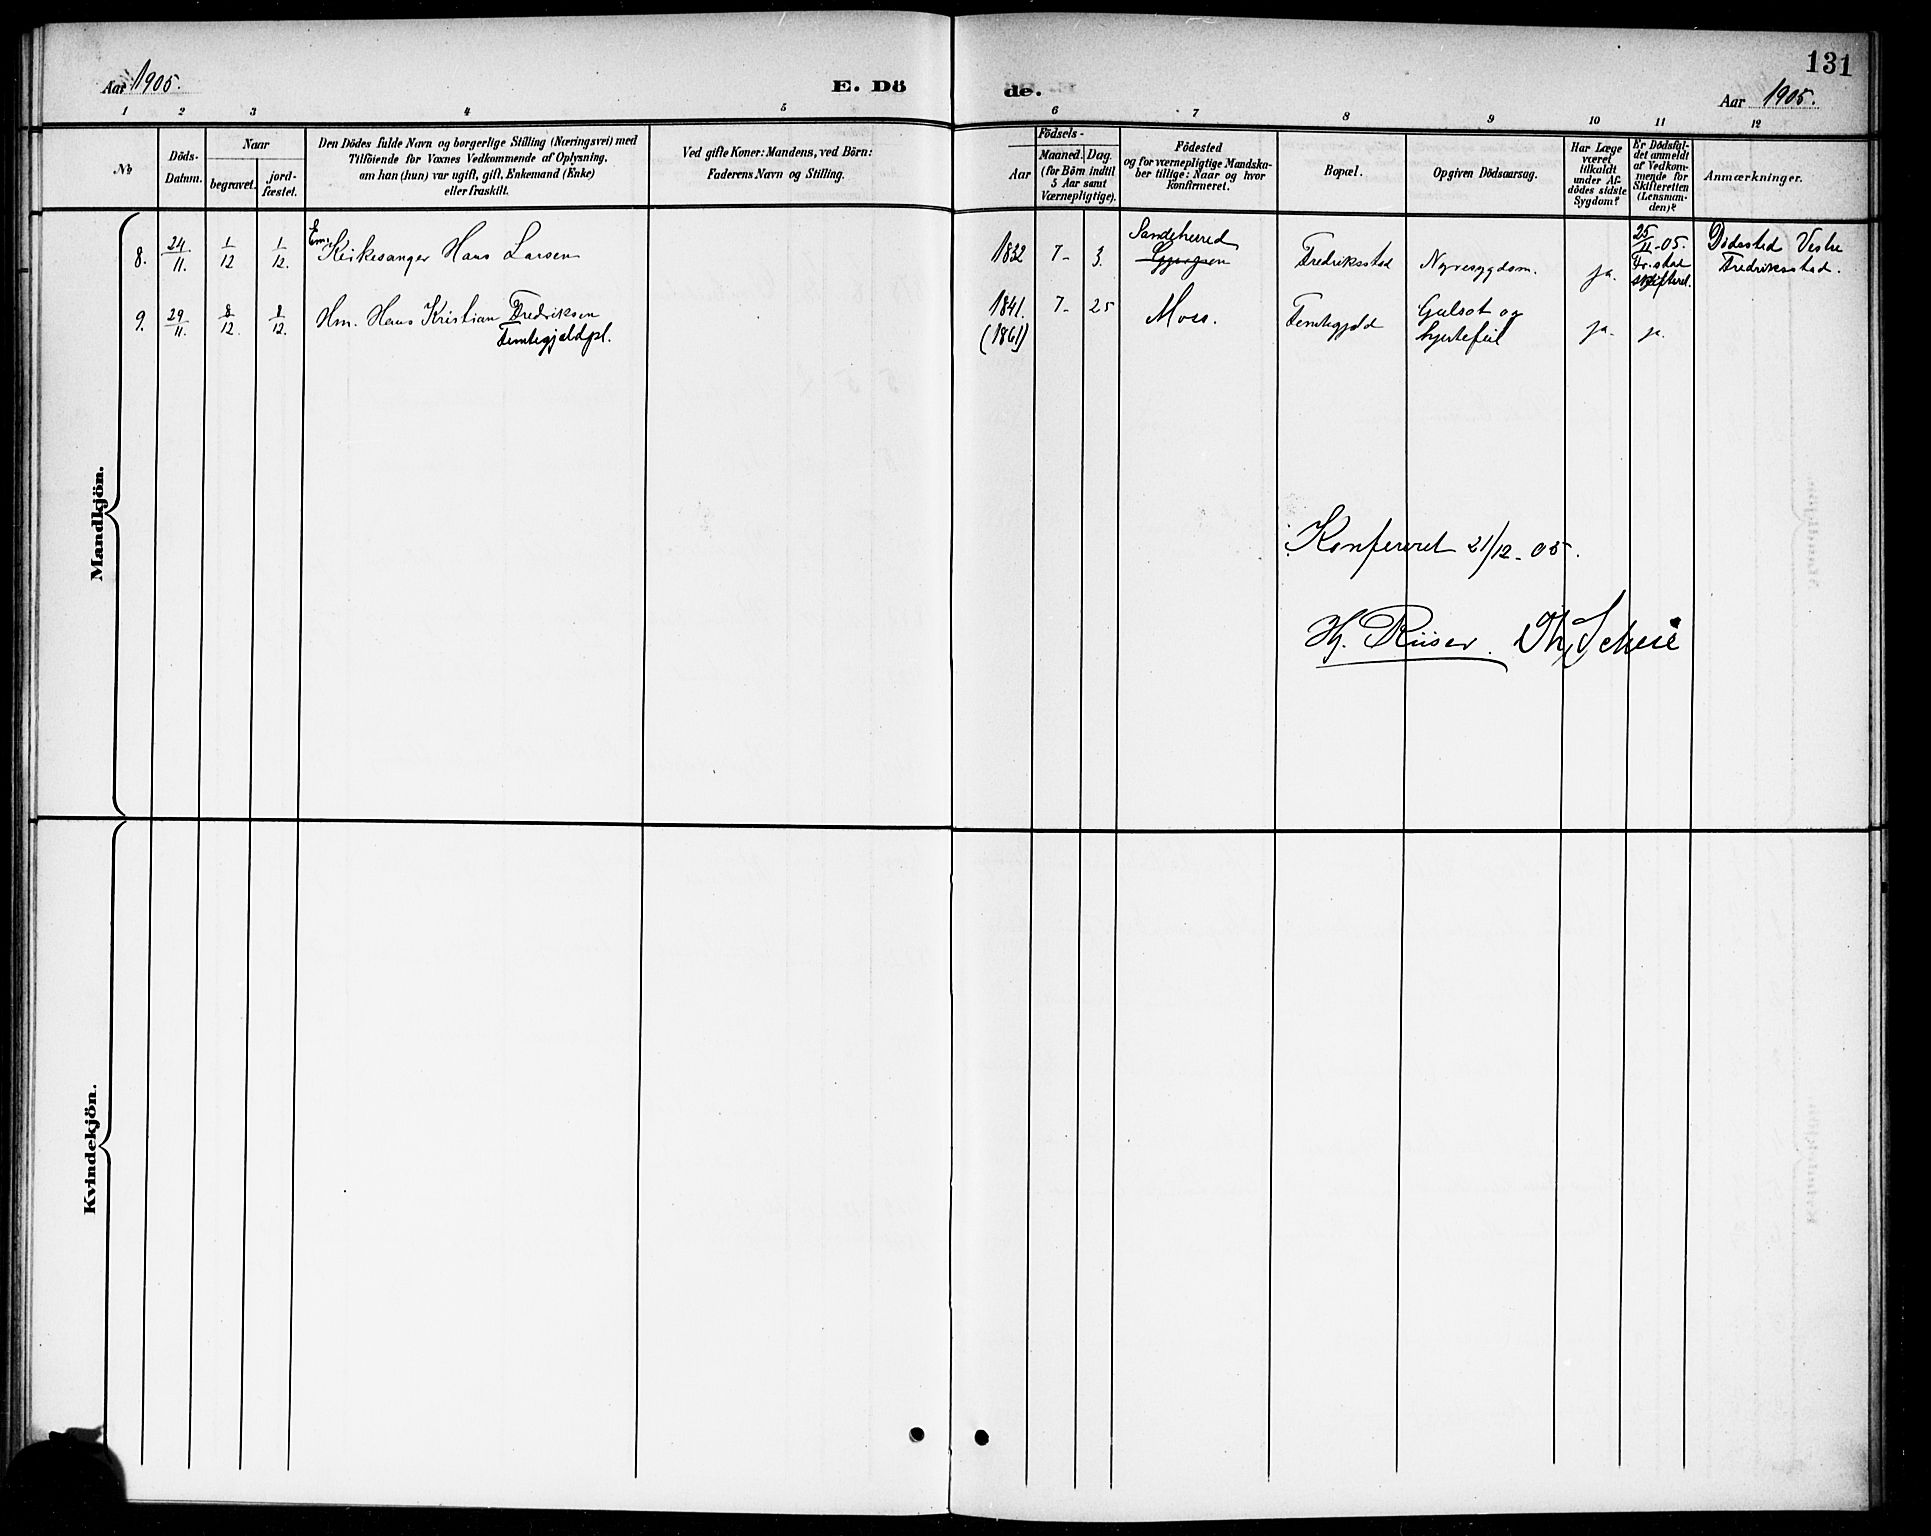 131
Aar 1905.
E. Dö
de.
Aar 1905.
1 2 3 4 5 6 7 8 9 10 11 12
No
Döds-
Datum.
Naar
begravet.
jord-
fæstet.
Den Dödes fulde Navn og borgerlige Stilling (Næringsvei) med
Tilföiende for Voxnes Vedkommende af Oplysning,
om han (hun) var ugift, gift, Enkemand (Enke)
eller fraskilt.
Ved gifte Koner: Mandens, ved Börn:
Faderens Navn og Stilling.
Födsels-
Aar
Maaned. Dag.
(for Börn indtil
5 Aar samt
Værnepligtige).
Födested
og for værnepligtige Mandska-
ber tillige: Naar og hvor
konfirmeret.
Bopæl.
Opgiven Dödsaarsag.
Har Læge
været
tilkaldt
under Af-
dödes sidste
Sygdom?
Er Dödsfal-
det anmeldt
af Vedkom-
mende for
Skifteretten
(Lensman-
den)?
Anmærkninger.
Mandkjön.
8. 24/11. 1/12 1/12. Em. Kirkesanger Hans Larsen 1832 7- 3. Sandeherred Fredriksstad Nyresygdom. ja. 25/11-05. Fr.stad skifteret. Dødssted Vestre
Fredriksstad.
9. 29/11. 8/12 8/12. Gm. Hans Kristian Fredriksen
Femtegjeldpl.
1841. 7- 25 Moss. Femtegjeld Gulsot og
hjertefeil ja. ja.
(1861)
Konfereret 21/12-05.
Hj. Riiser. Th. Scheie
Kvindekjön.